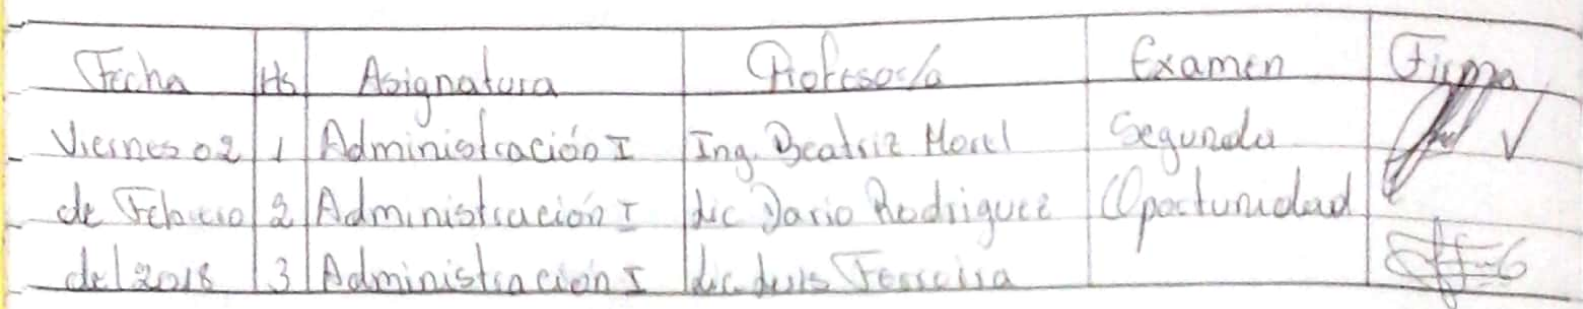 Fecha Hs Asignatura Profesor/a Examen Firma
Viernes 02 1 Administración I Ing. Beatriz Morel Segunda
de Febrero 2 Administración I Lic Dario Rodriguez Oportunidad
del 2018 3 Administración I Lic. Luis Ferreira